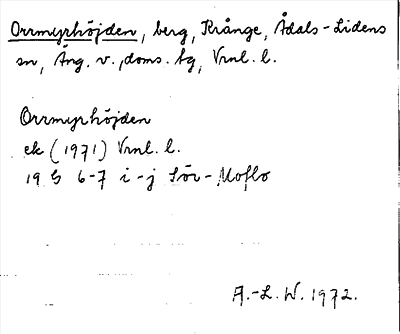 Orrmyrhöjden, berg, Krånge, Ådals-Lidens
sn, Ång. v., doms. tg, Vrnl. l.
Orrmyrhöjden
ek (1971) Vrnl. l.
19 G 6-7 i-j Sör-Moflo
A.-L. W. 1972.